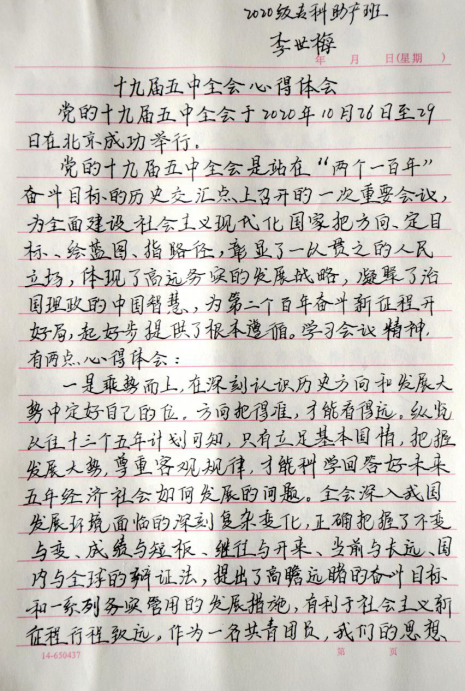 2020级专科助产班
李世梅
年 月 日(星期 )
十九届五中全会心得体会
党的十九届五中全会于2020年10月26日至29
日在北京成功举行。
党的十九届五中全会是站在“两个一百年”
奋斗目标的历史交汇点上召开的一次重要会议,
为全面建设社会主义现代化国家把方向、定目
标、绘蓝图、指路径,彰显了一以贯之的人民
立场,体现了高远务实的发展战略,凝聚了治
国理政的中国智慧、为第二个百年奋斗新征程开
好局,起好步提供了根本遵循。学习会议精神,
有两点心得体会:
一是乘势而上,在深刻认识历史方向和发展大
势中定好自己的位。方向把得准,才能看得远。纵览
以往十三个五年计划可知,只有立足基本国情,把握
发展大势,尊重客观规律,才能科学回答好未来
五年经济社会如何发展的问题。全会深入我国
发展环境面临的深刻复杂变化,正确把握了不变
与变、成绩与短板、继往与开来、当前与长远、国
内与全球的辩证法,提出了高瞻远瞩的奋斗目标
和一系列务实管用的发展措施,有利于社会主义新
征程行程致远。作为一名共青团员,我们的思想、
14-650437 第 页